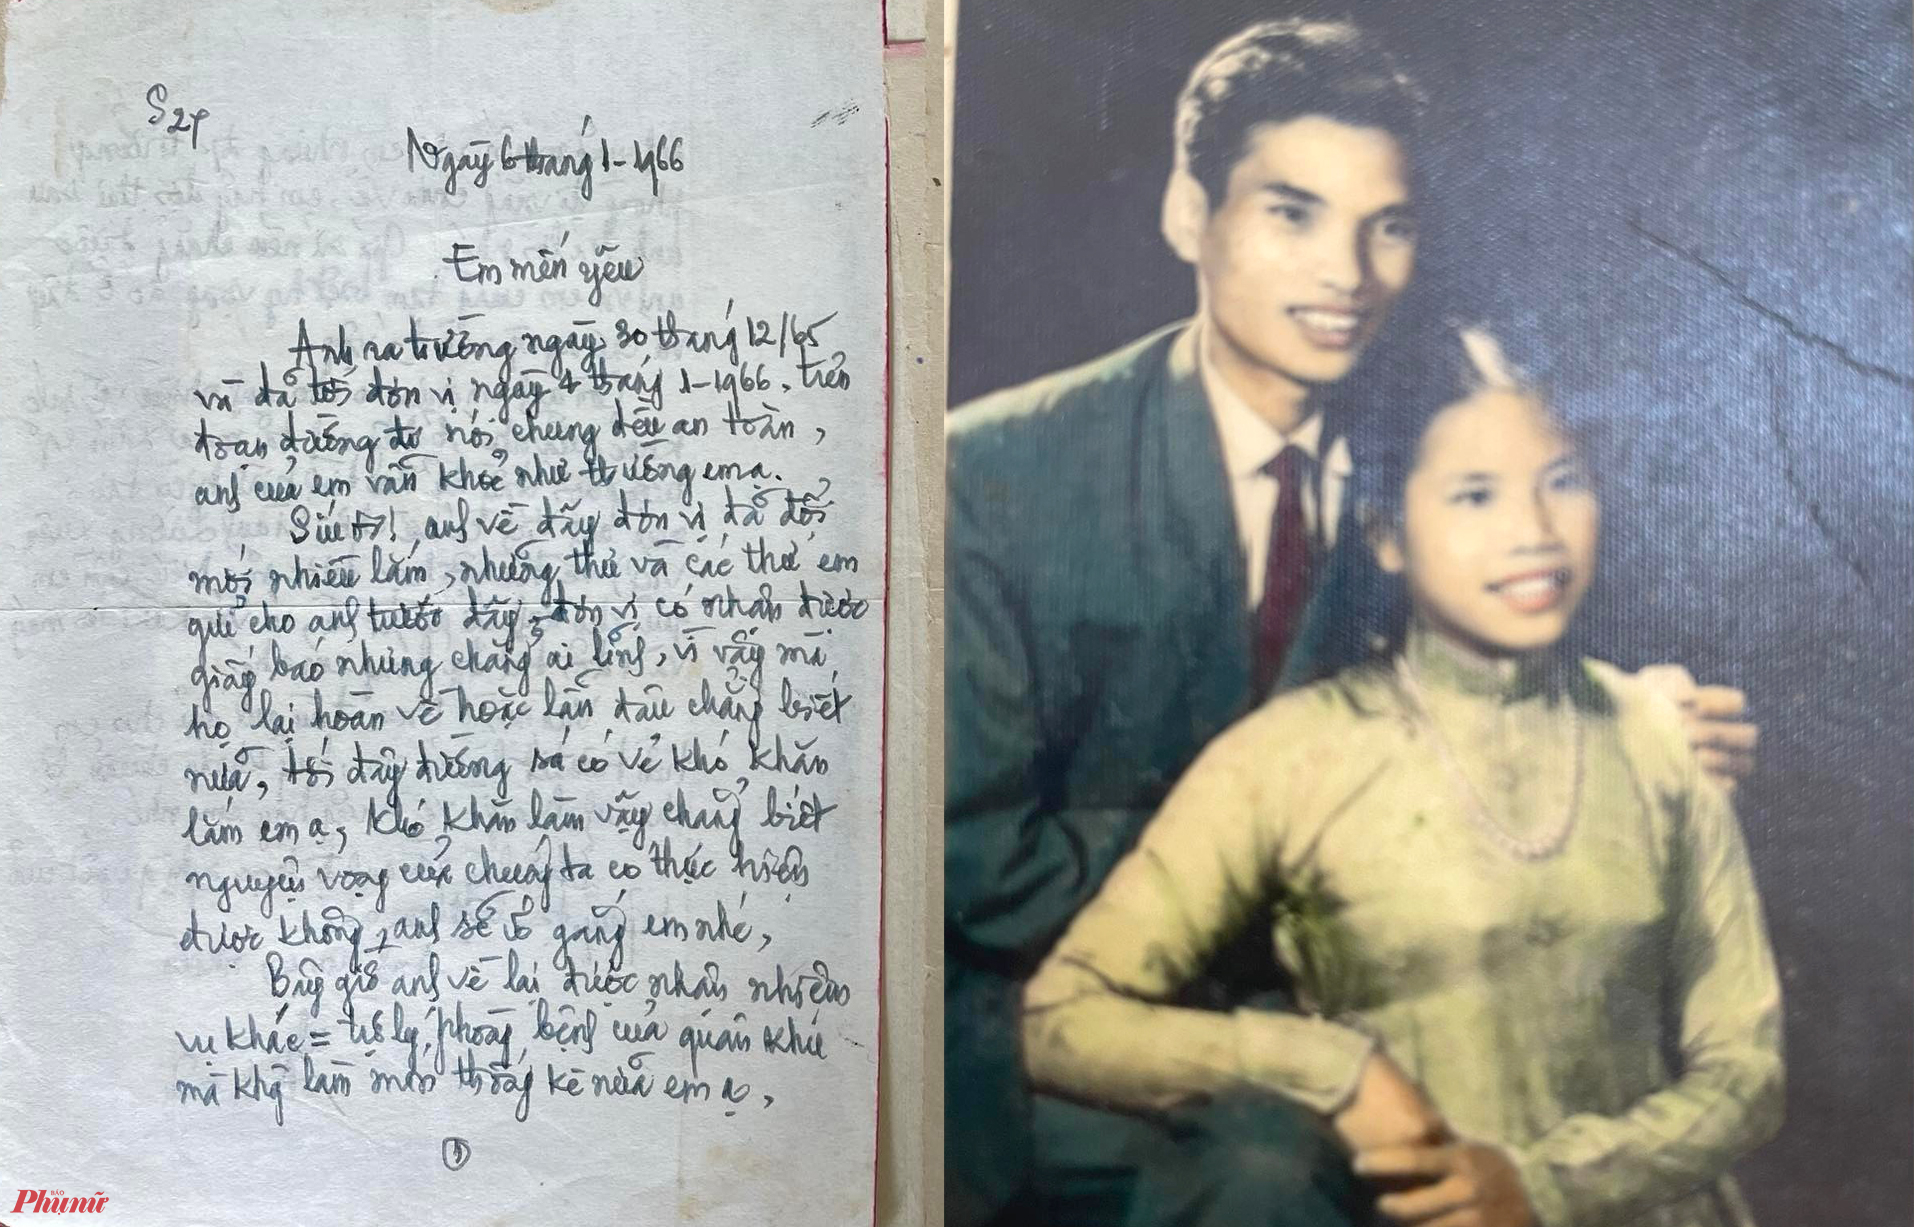 S24
Ngày 6 tháng 1-1966
Em mến yêu
Anh ra trường ngày 30 tháng 12/65
và đã tới đơn vị ngày 4 tháng 1-1966, trên
đoạn đường đi nói chung đều an toàn,
anh của em vẫn khoẻ như thường em ạ.
Sửu ơi! anh về đây đơn vị đã đổi
mới nhiều lắm, những thứ và các thư em
gửi cho anh trước đây, đơn vị có nhận được
giấy báo nhưng chẳng ai lĩnh, vì vậy mà
họ lại hoàn về hoặc lẫn đâu chẳng biết
nữa, tới đây đường sá có vẻ khó khăn
lắm em ạ, khó khăn lắm vậy chẳng biết
nguyện vọng của chúng ta có thực hiện
được không, anh sẽ cố gắng em nhé,
Bây giờ anh về lại được nhận nhiệm
vụ khác = trợ lý phòng bệnh của quân khu
mà khg làm môn thống kê nữa em ạ,
1
BÁO
Phụ nữ